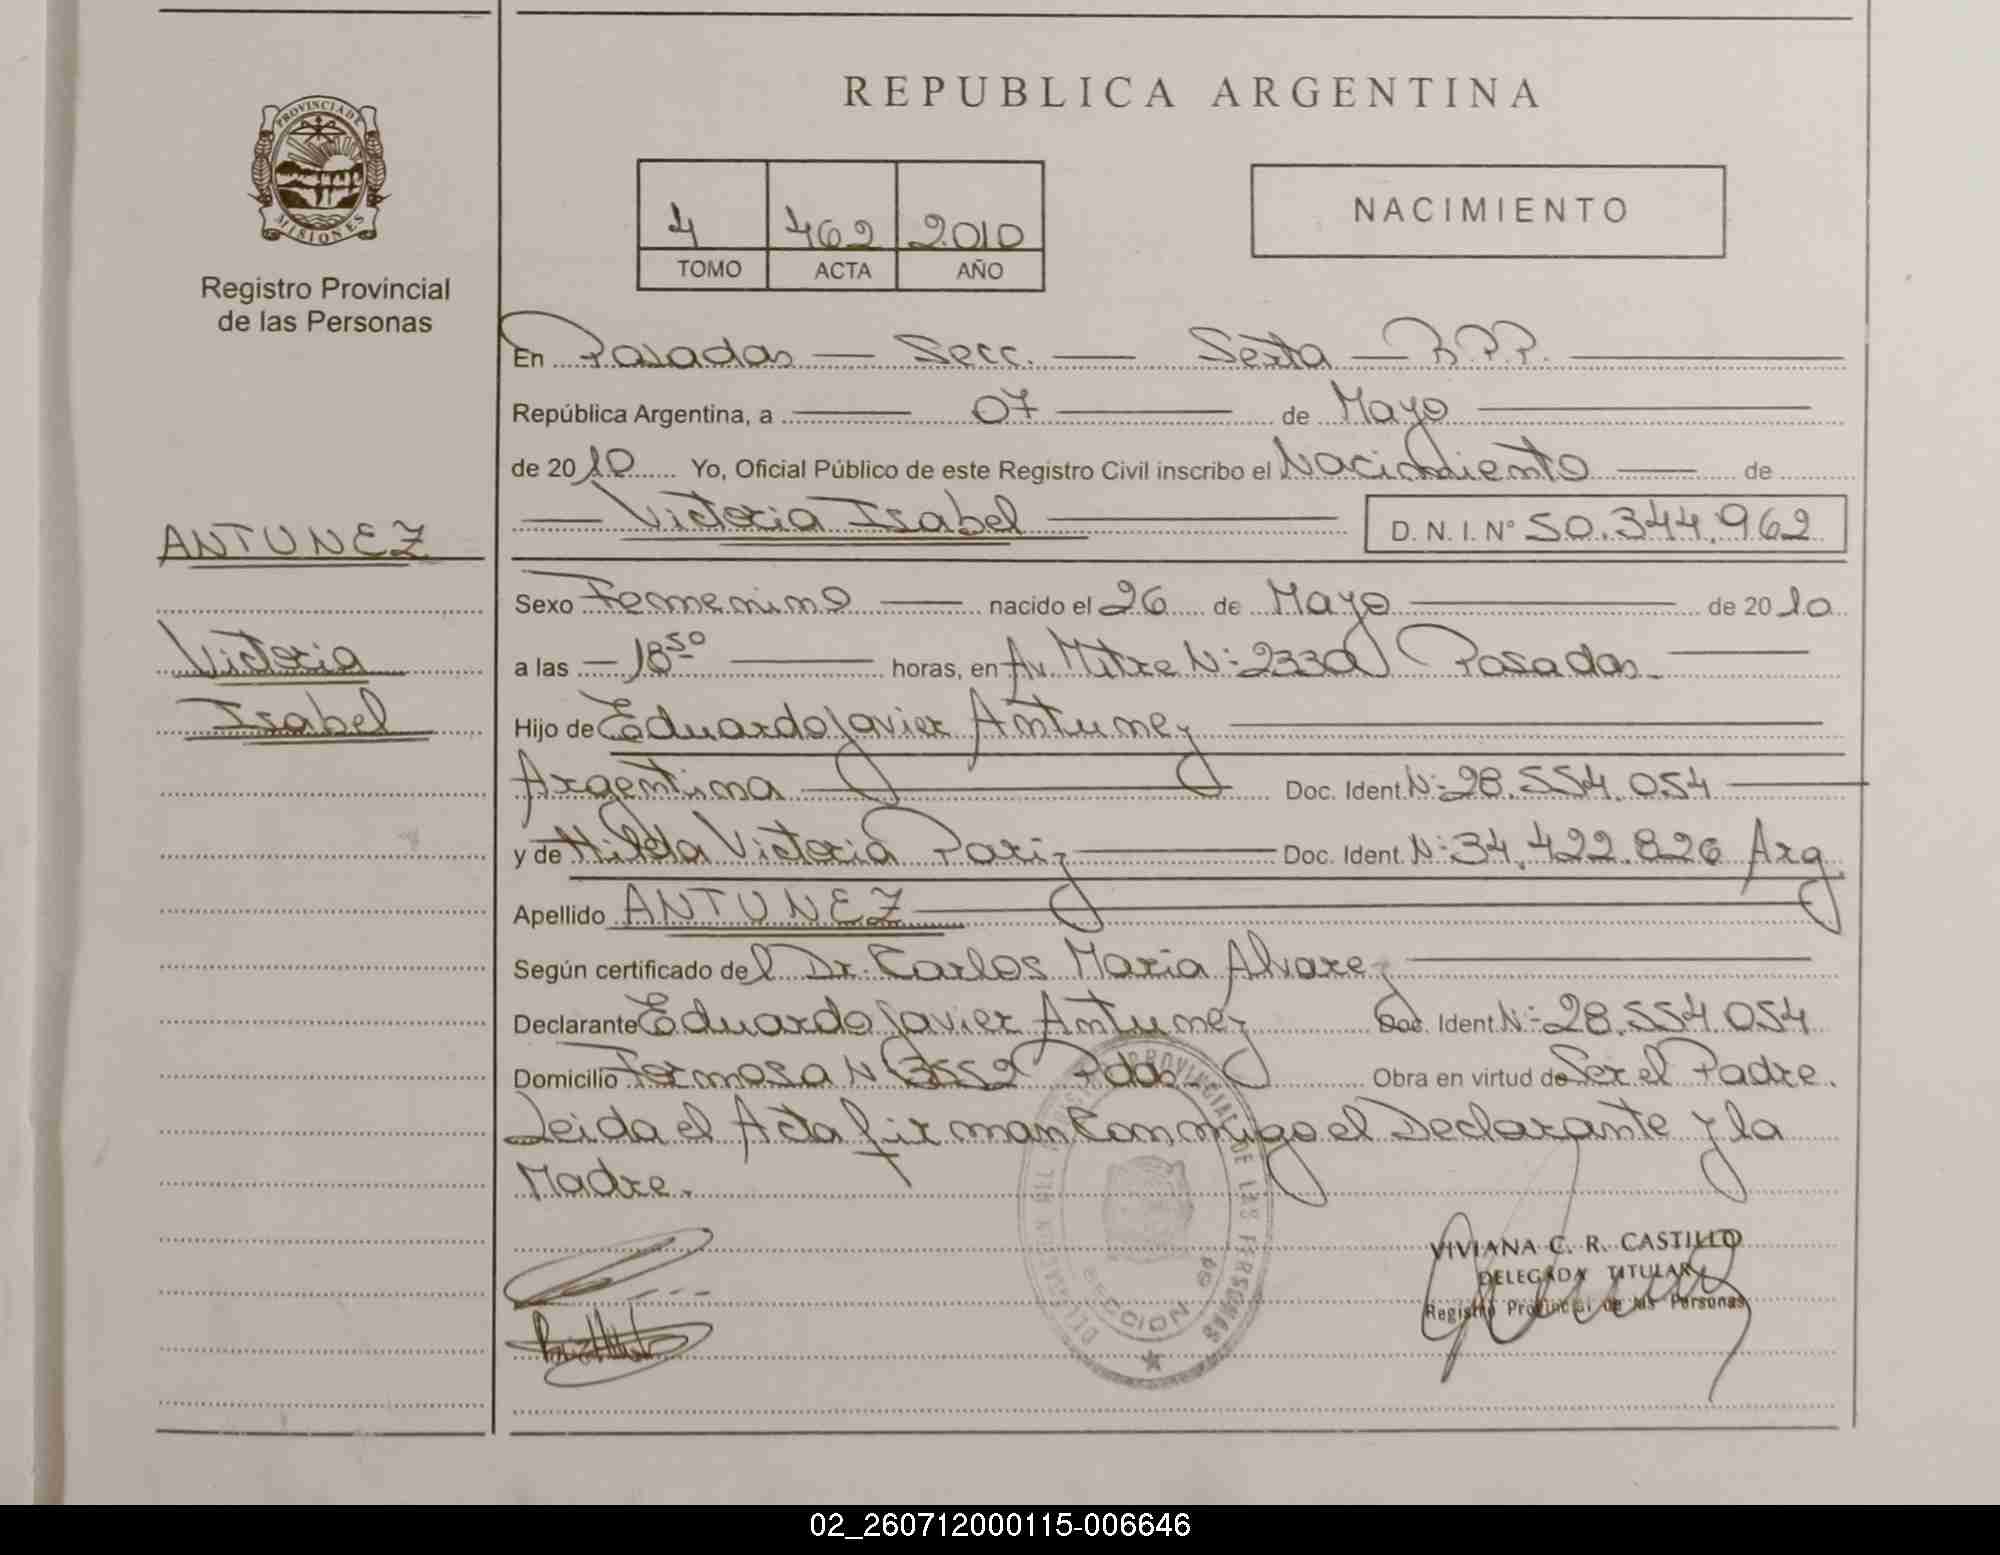 REPUBLICA ARGENTINA
PROVINCIA DE MISIONES
Registro Provincial
de las Personas
4 462 2010
TOMO ACTA AÑO
NACIMIENTO
En Posadas — Secc. — Sexta — R.P.P.
República Argentina, a 07 de Mayo
de 2010 Yo, Oficial Público de este Registro Civil inscribo el Nacimiento de
Victoria Isabel D.N.I. N° 50.344.962
ANTUNEZ
Victoria
Isabel
Sexo Femenino nacido el 26 de Mayo de 2010
a las 18 50 horas, en Av. Mitre N: 2330 Posadas
Hijo de Eduardo Javier Antunez
Argentina Doc. Ident N: 28.554.054
y de Hilda Victoria Pariz Doc. Ident N: 34.422.826 Arg
Apellido ANTUNEZ
Según certificado del Dr. Carlos Maria Alvarez
Declarante Eduardo Javier Antunez Doc. Ident N: 28.554.054
Domicilio Formosa N 3552 Pdas Obra en virtud de Ser el Padre.
Leida el Acta firman Conmigo el Declarante y la
Madre.
VIVIANA C. R. CASTILLO
DELEGADA TITULAR
Registro Provincial de las Personas
PROVINCIAL DE LAS PERSONAS
SECCION 6ª
02_260712000115-006646